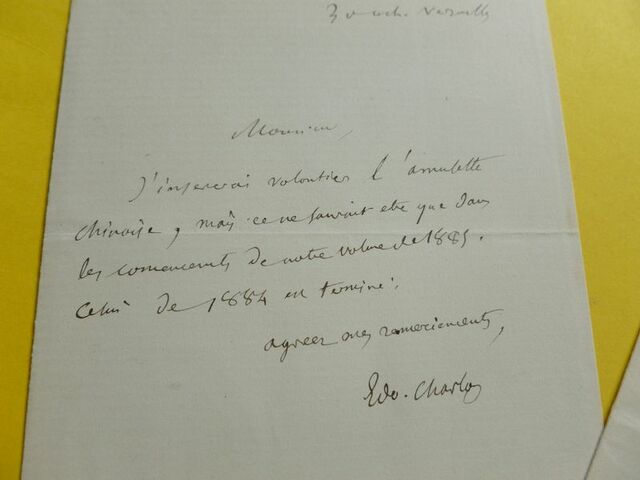 3 oct. Versailles
Monsieur,
J'insererai volontier l'amulette
chinoise, mais ce ne saurait etre que dans
les comencements de notre volume de 1885.
Celui de 1884 est terminé.
agreer mes remerciements,
Edo. Charton